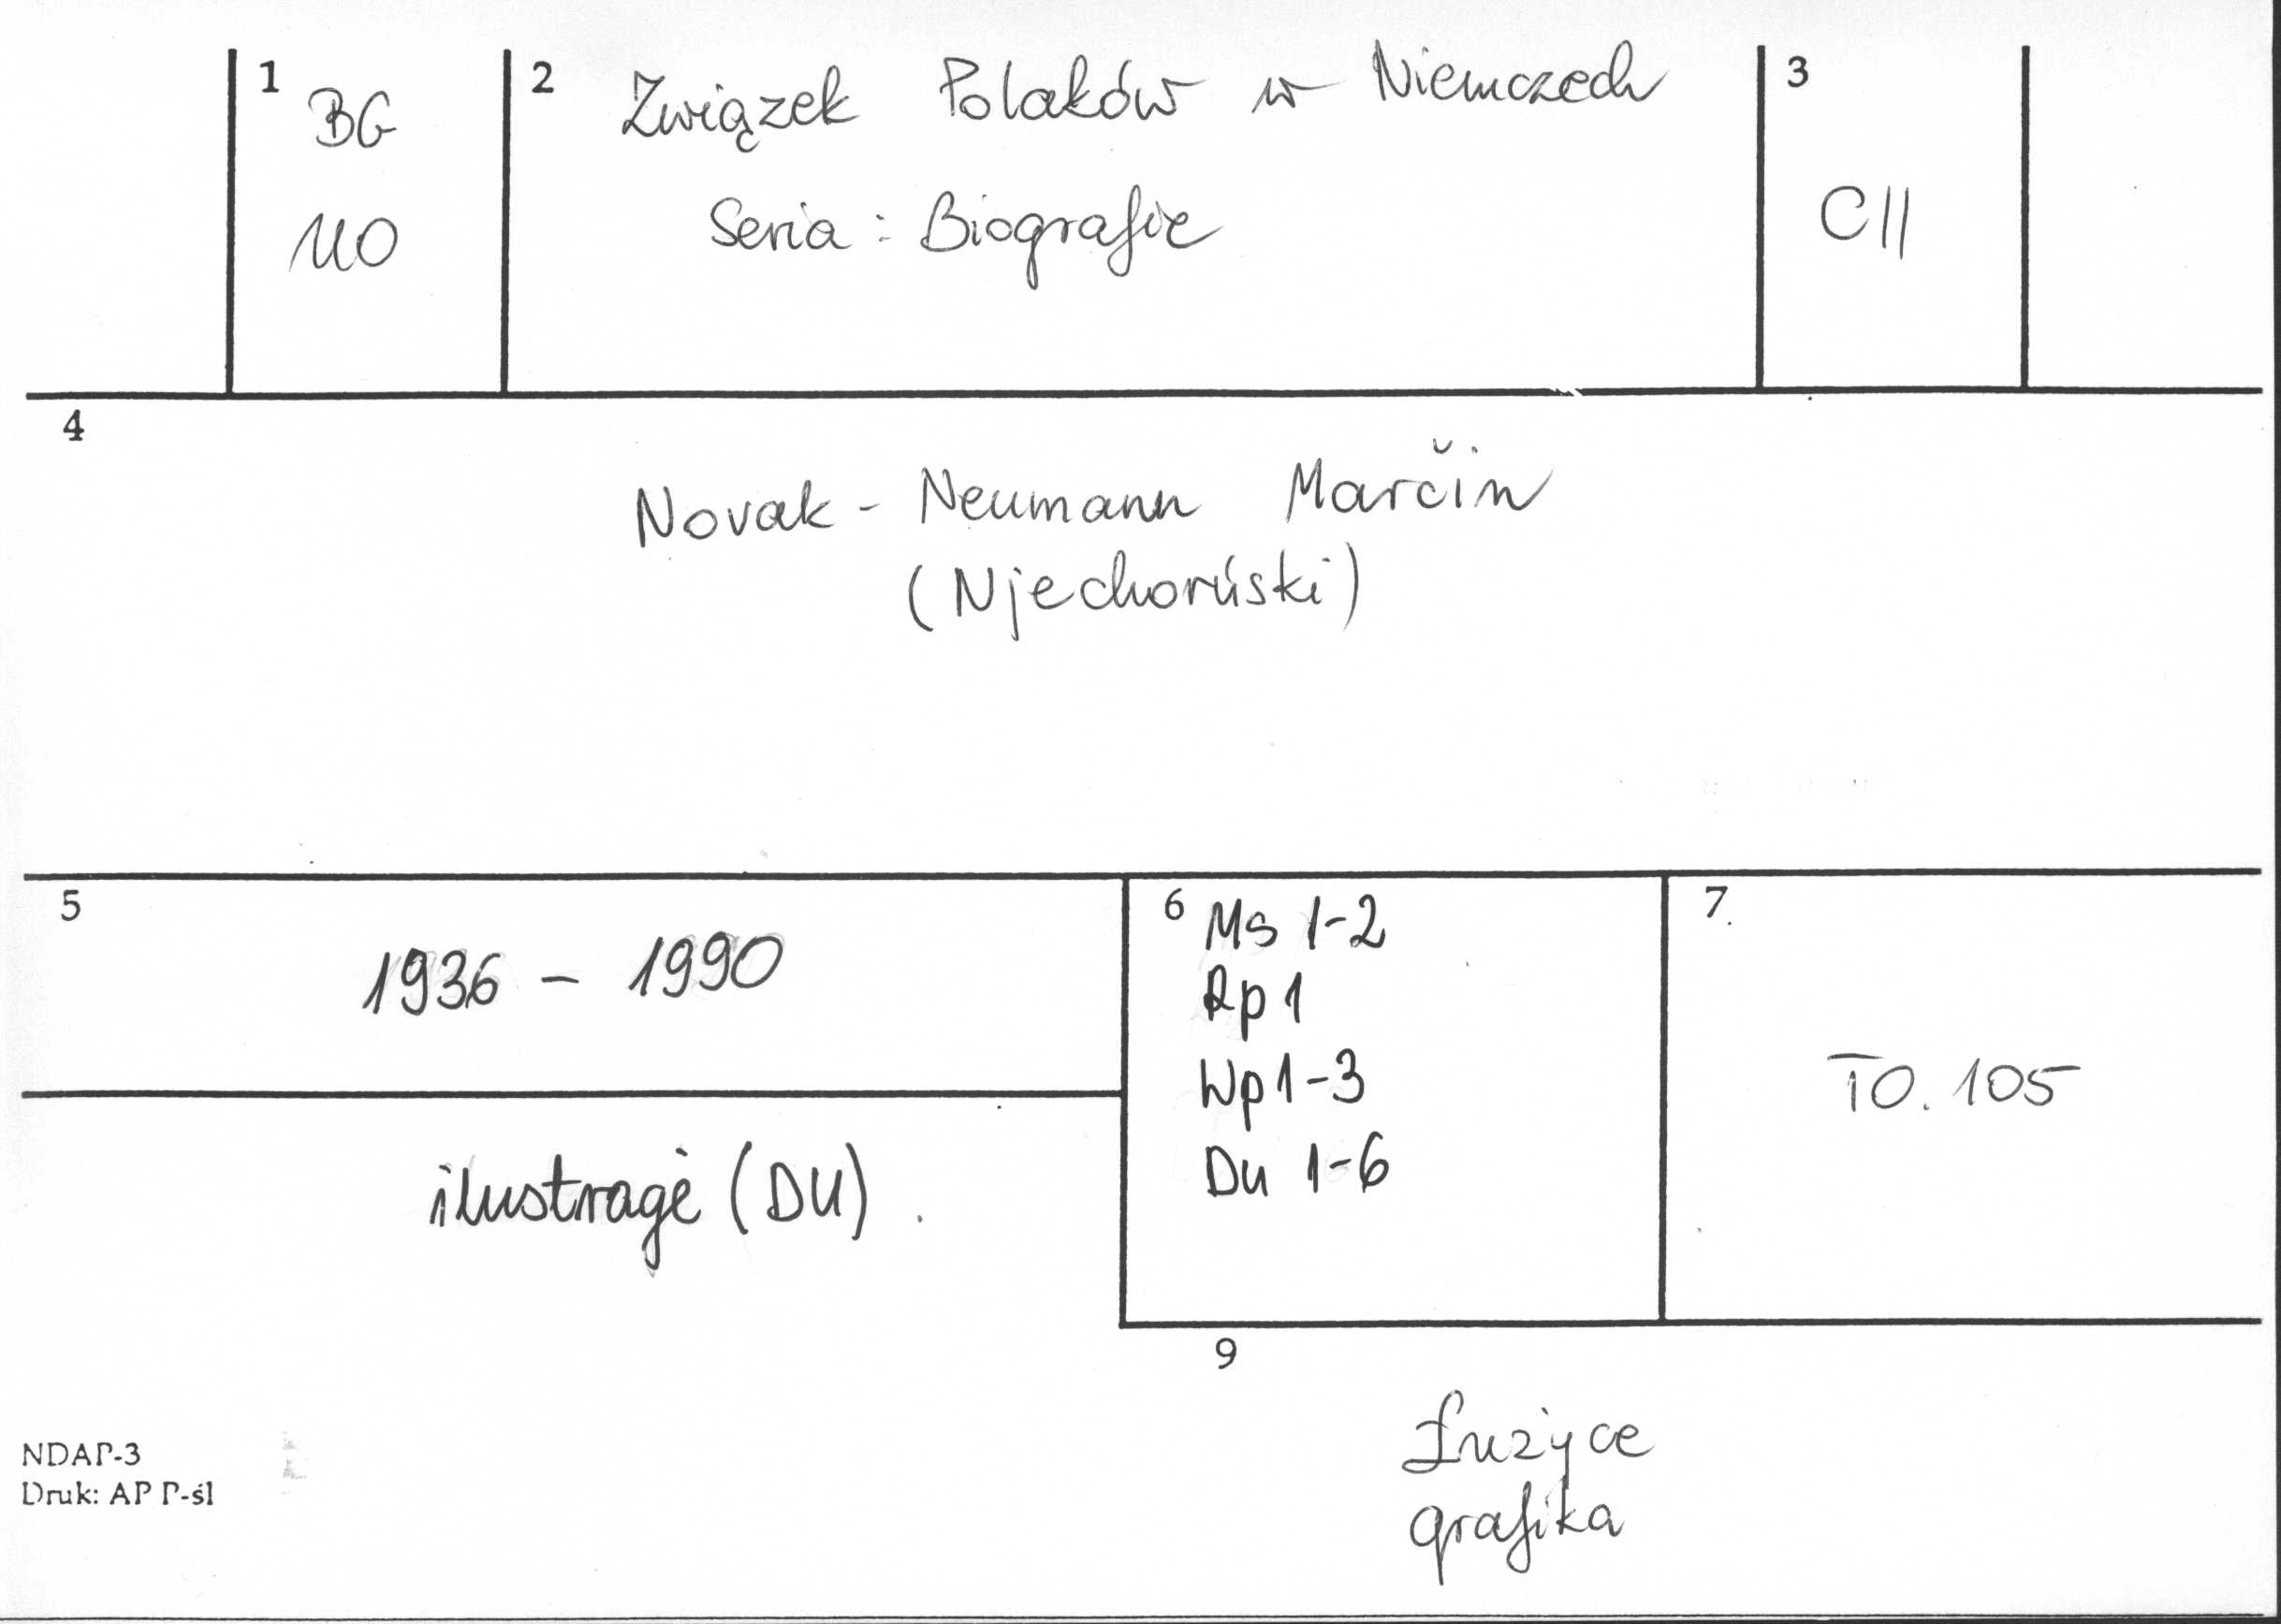 1
BG
110
2
Związek Polaków w Niemczech
Seria : Biografie
3
C II
4
Novak - Neumann Marčin
(Njechorński)
5
1936 - 1990
ilustracje (DU)
6
Ms 1-2
Rp 1
Wp 1-3
Du 1-6
7.
TO. 105
9
Łużyce
grafika
NDAP-3
Druk: AP P-śl